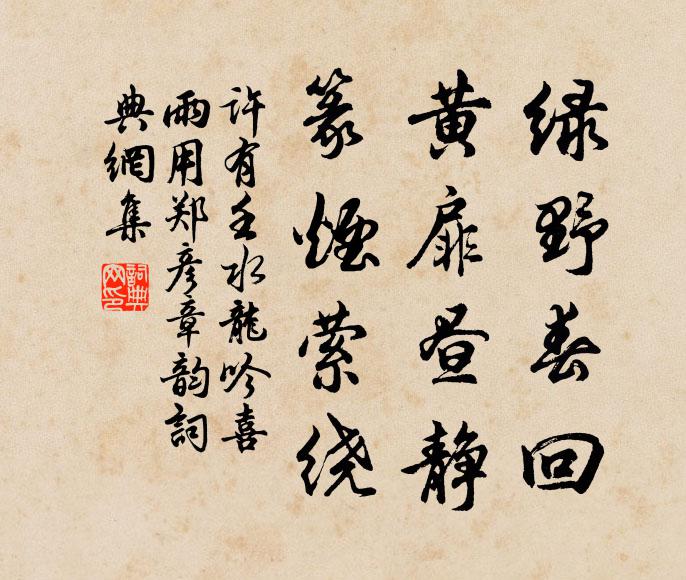 绿野春回
黄扉昼静
篆烟萦绕
许有壬水龍吟喜
雨用郑彦章韵詞
典網集
詞典网印